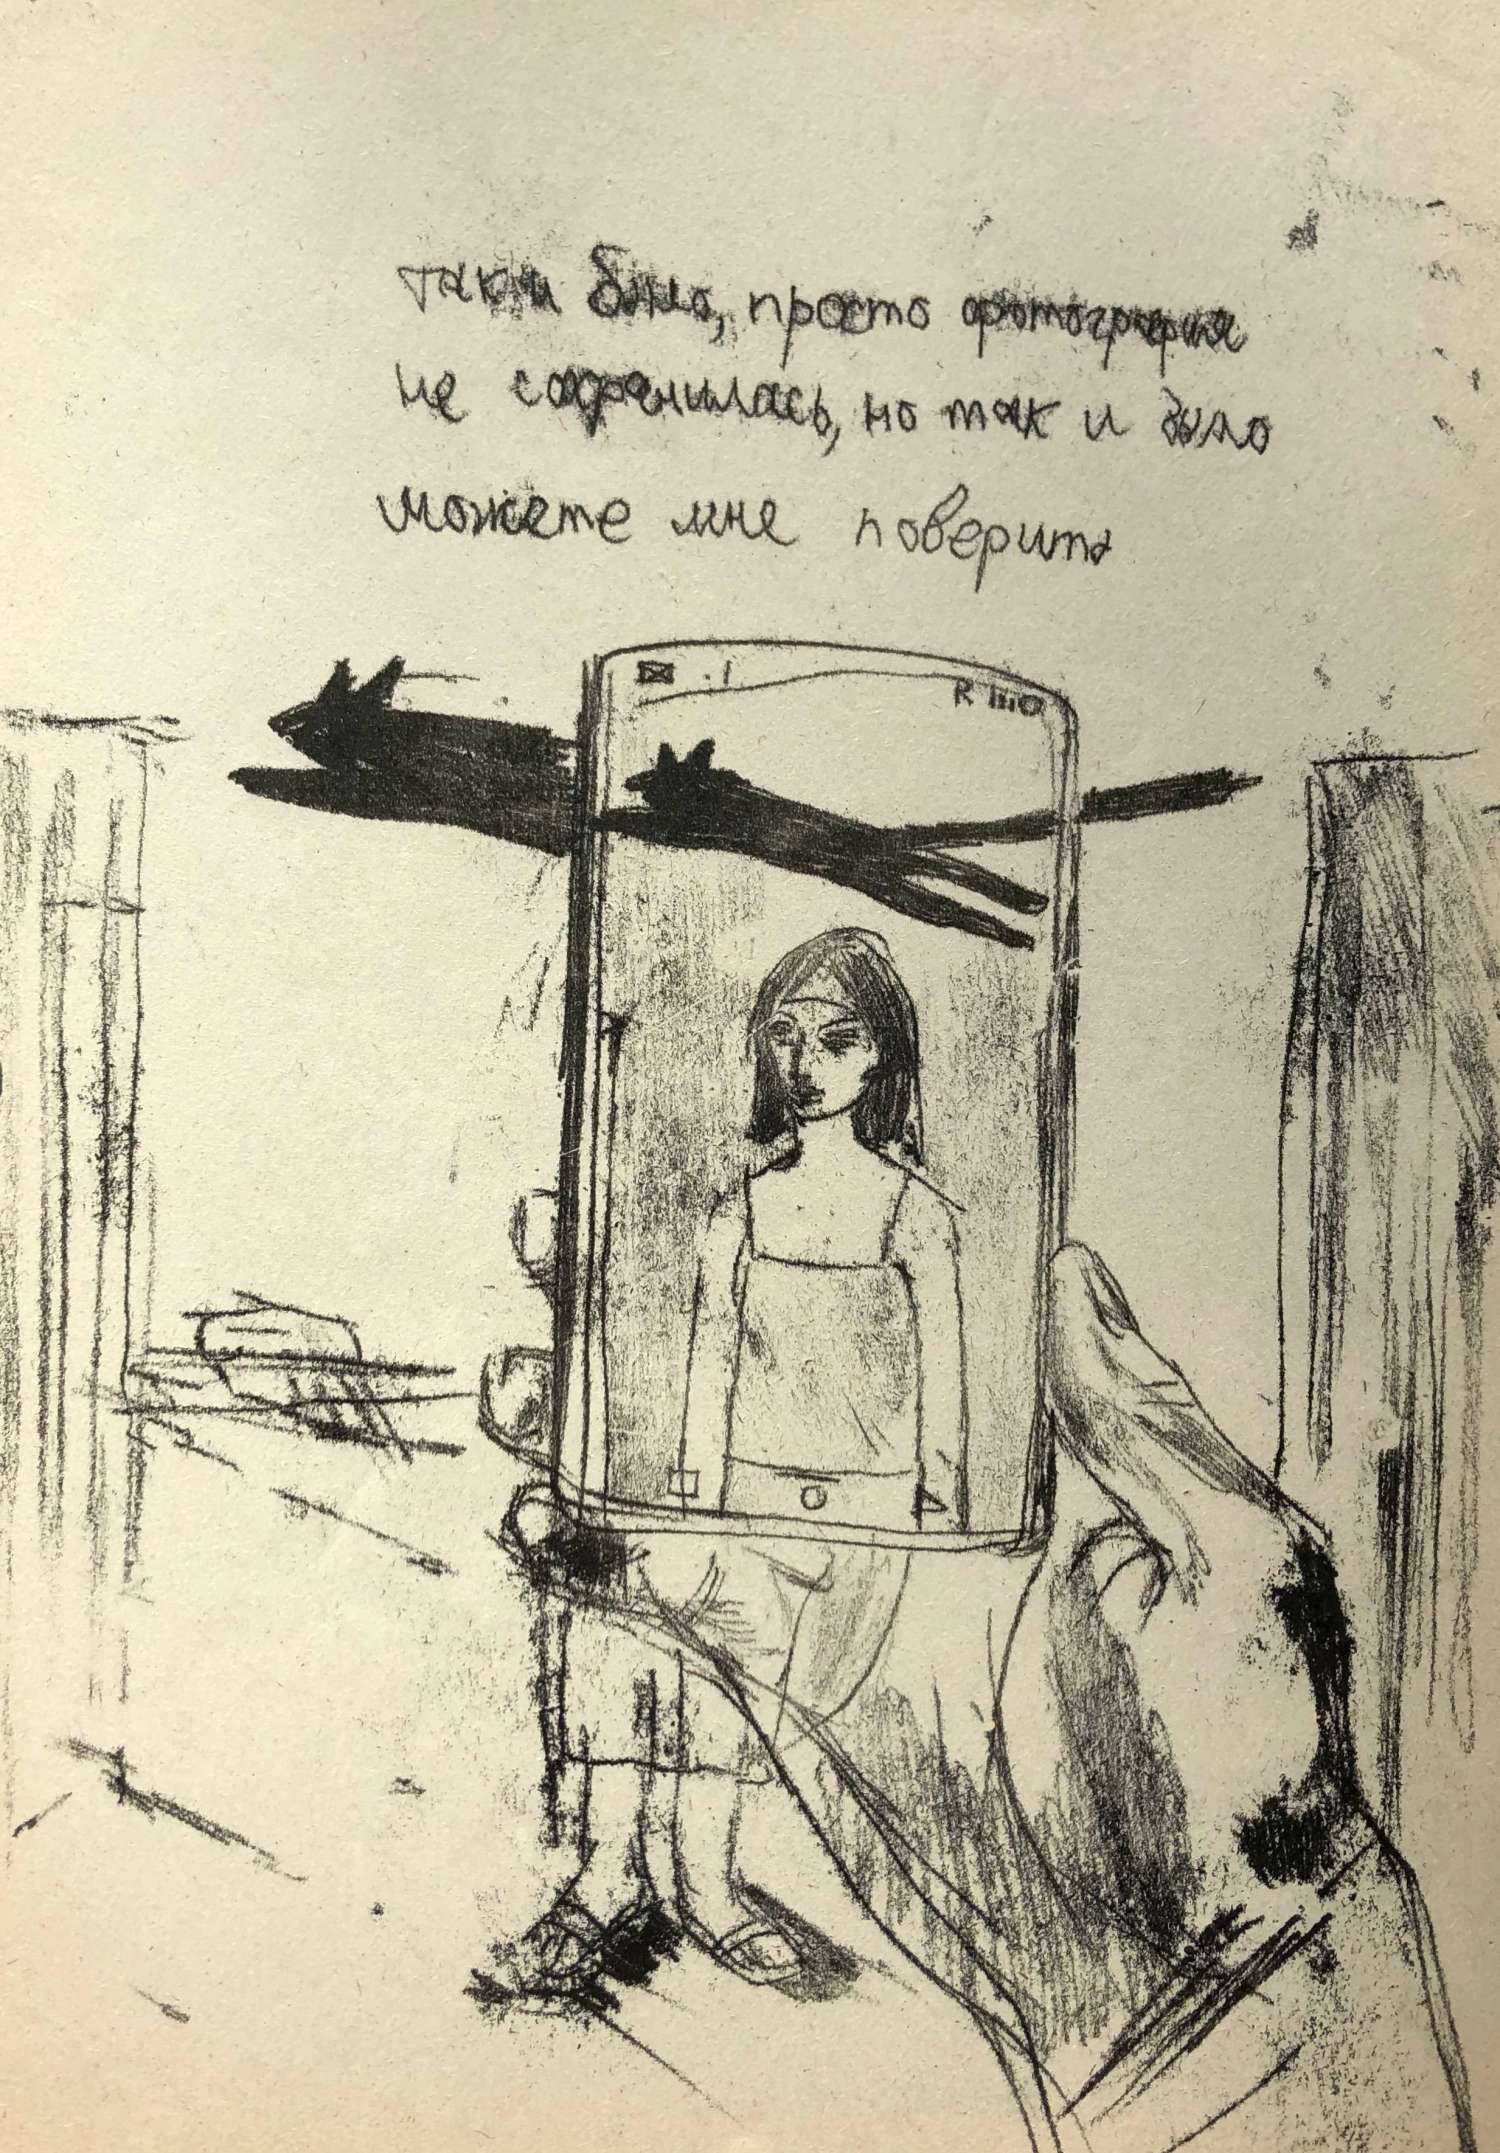 так и было, просто фотография
не сохранилась, но так и было
можете мне поверить
R